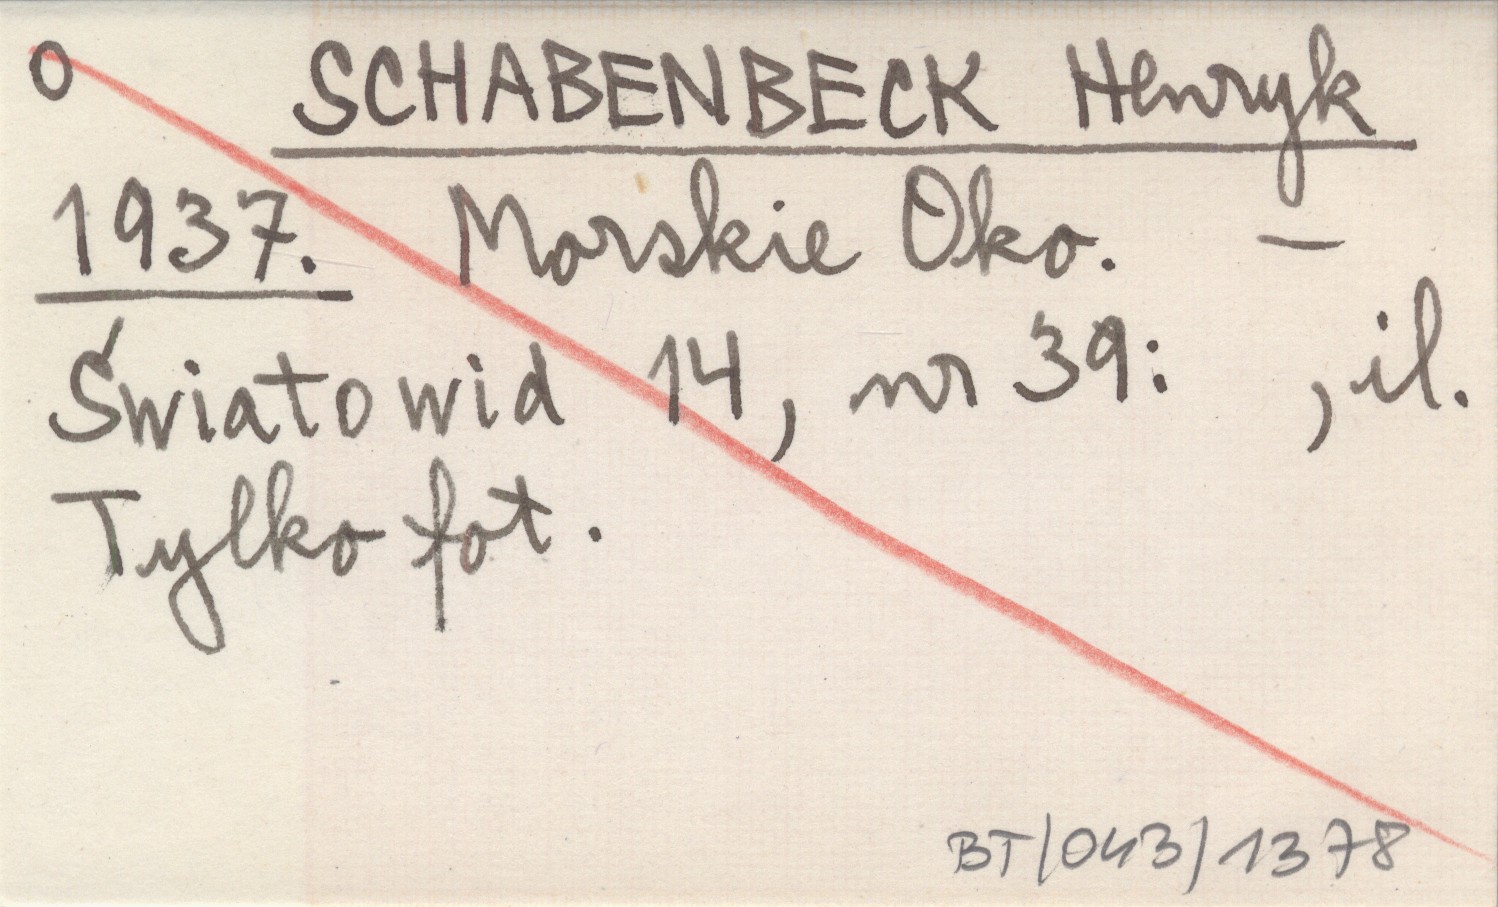 O SCHABENBECK Henryk
1937. Morskie Oko. —
Światowid 14, nr 39: , il.
Tylko fot.
BT/043/1378